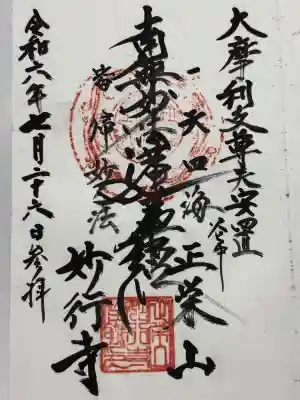 大摩利支尊天安置
一天四海
正栄山
南無妙法蓮華経
皆帰妙法
妙行寺
令和六年七月二十六日参拝